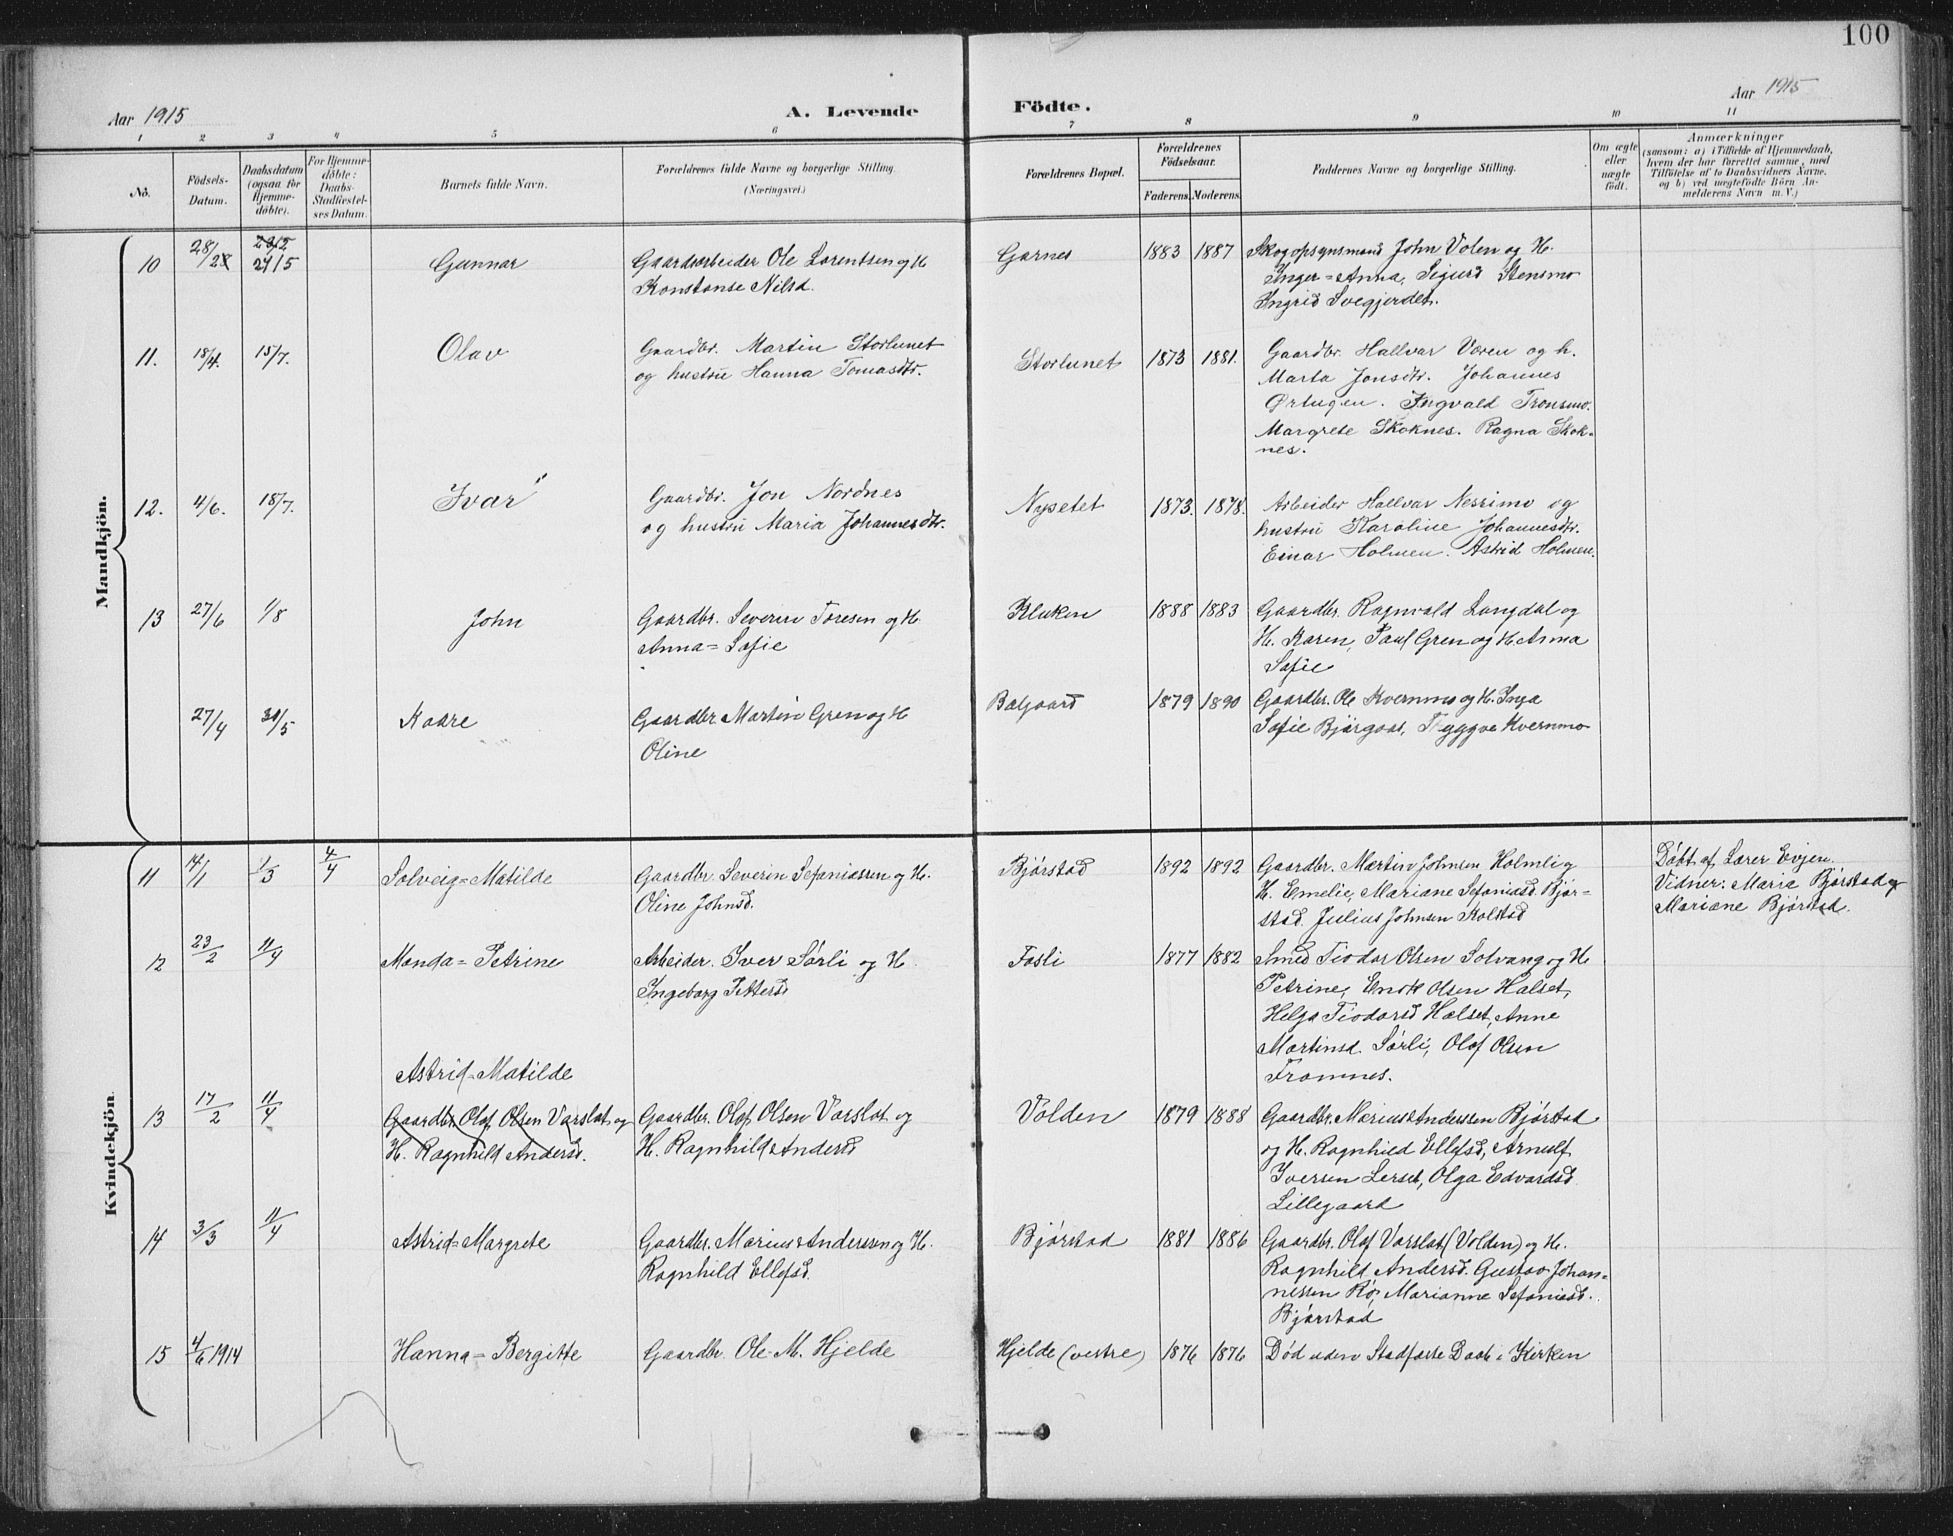 100
Aar 1915
A. Levende
Födte.
Aar 1915
1 2 3 4 5 6 7 8 9 10 11
No.
Födsels-
Datum.
Daabsdatum
(ogsaa for
Hjemme-
döbte).
For Hjemme-
döbte:
Daabs-
Stadfæstel-
ses Datum.
Barnets fulde Navn.
Forældrenes fulde Navne og borgerlige Stilling.
(Næringsvei.)
Forældrenes Bopæl.
Forældrenes
Födselsaar.
Faderens. Moderens.
Faddernes Navne og borgerlige Stilling.
Om ægte
eller
uægte
födt.
Anmærkninger
(saasom: a) i Tilfælde af Hjemmedaab,
hvem der har forrettet samme, med
Tilföielse af to Daabsvidners Navne.
og b) ved uægtefödte Börn An-
melderens Navn m. V.)
Mandkjön.
10 28/2 24/5 Gunnar
Gaardsarbeider Ole Lorentsen og H
Konstanse Nilsd.
Garnes 1883 1887
Skogopsynsmand John Volen og H.
Inger=Anna, Sigurd Stensmo
Ingrid Svegjerdet.
11. 18/4. 15/7. Olav
Gaardbr. Martin Storlunet
og hustru Hanna Tomasdtr.
Storlunet 1873 1881.
Gaardbr. Hallvar Væren og h.
Marta Jonsdtr. Johannes
Ørtugen. Ingvald Tronsmo.
Margrete Skoknes. Ragna Skok-
nes.
12. 4/6. 18/7. Ivar
Gaardbr. Jon Nordnes
og hustru Maria Johannesdtr.
Nysetet 1873. 1878.
Arbeider Hallvar Nessimo og
hustru Karoline Johannesdtr.
Einar Holmen. Astrid Holmen.
13 27/6 1/8 John
Gaardbr. Severin Toresen og H.
Anna=Sofie
Kluken 1888 1883
Gaardbr. Ragnvald Langdal og
H. Karen, Paul Gren og H. Anna
Sofie
27/4 30/5 Kaare
Gaardbr Martin Gren og H
Oline
Balgaard 1879 1890
Gaardbr. Ole Kvernmo og H. Inga
Sofie Bjørgaas, Tryggve Kvernmo
Kvindekjön.
11 14/1 1/3 4/4 Solveig=Matilde
Gaardbr Severin Sefaniassen og H.
Oline Johnsd.
Bjørstad 1892 1892
Gaardbr. Martin Johnsen Holmli og
H. Emelie, Mariane Sefaniasd. Bjør-
stad, Julius Johnsen Kolstad
Døbt af Lærer Evjen.
Vidner: Maria Bjørstad og
Mariane Bjørstad.
12 23/2 11/4 Manda=Petrine
Arbeider. Iver Sørli og H.
Ingeborg Pettersd
Fosli 1877 1882
Smed Teodor Olsen Solvang og H
Petrine, Enok Olsen Halset,
Helga Teodorsd Halset, Anne
Martinsd. Sørli, Olaf Olsen
Framnes.
Astrid=Matilde
13 17/2 11/4
Gaardbr. Olaf Olsen Varslot og
H. Ragnhild Andersd.
Gaardbr. Olaf Olsen Varslot og
H. Ragnhild Andersd
Volden 1879 1888
Gaardbr. Marius Anderssen Bjørstad
og H. Ragnhild Ellefsd, Arnulf
Iversen Lerset, Olga Edvardsd.
Lillegaard
14 3/3 11/4 Astrid=Margrete
Gaardbr. Marius Anderssen og H.
Ragnhild Ellefsd.
Bjørstad 1881 1886
Gaardbr. Olaf Varslot (Volden) og H.
Ragnhild Andersd. Gustav Johan=
nessen Rø, Marianne Sefaniasd.
Bjørstad
15 4/6 1914 Hanna=Bergitte
Gaardbr. Ole M. Hjelde
Hjelde (vestre) 1876 1876
Død uden Stadfæste Daab i Kirken